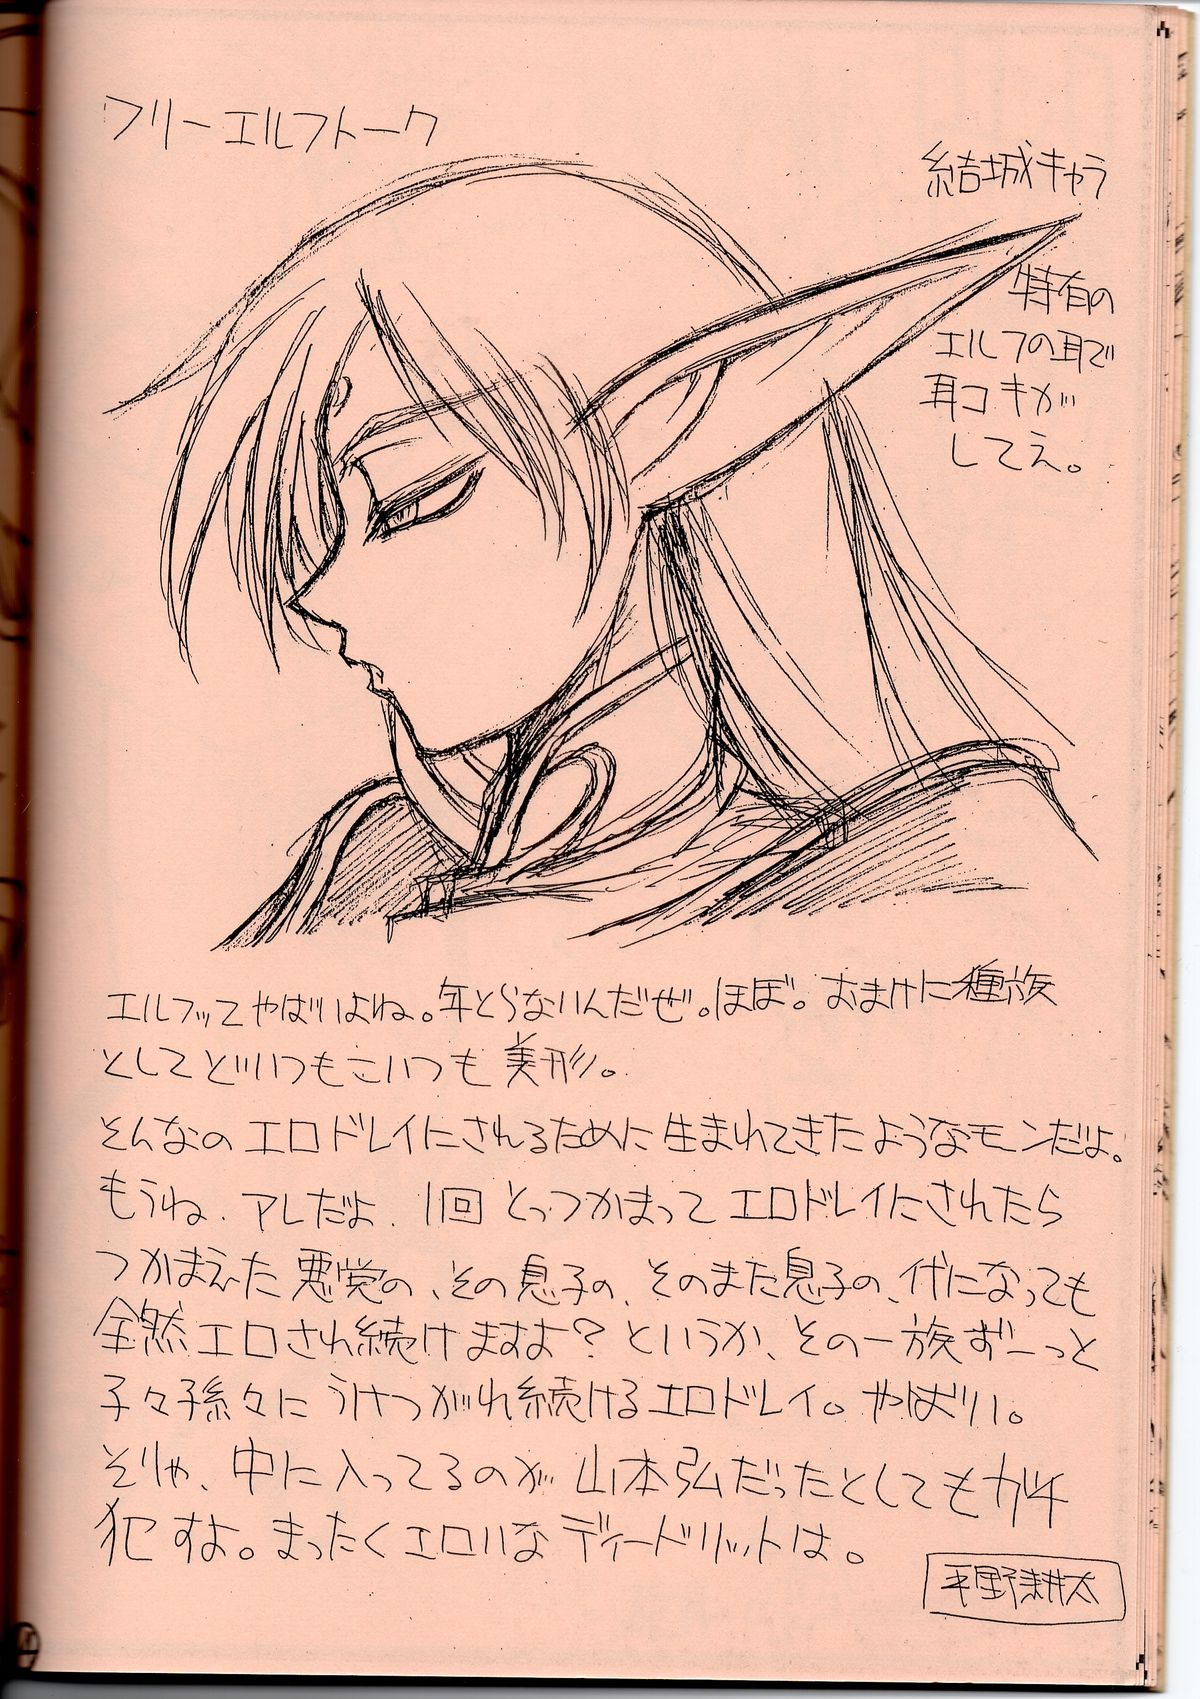 フリーエルフトーク
結城キャラ
特有の
エルフの耳で
耳コキが
してえ。
エルフってやばいよね。年とらないんだぜ。ほぼ。おまけに種族
としてどいつもこいつも美形。
そんなのエロドレイにされるために生まれてきたようなモンだよ。
もうね、アレだよ、1回とっつかまってエロドレイにされたら
つかまえた悪党の、その息子の、そのまた息子の、代になっても
全然エロされ続けますよ?というか、その一族ずーっと
子々孫々にうけつがれ続けるエロドレイ。やばい。
そりゃ、中に入ってるのが山本弘だったとしてもガチ
犯すよ。まったくエロいなディードリットは。
平野耕太